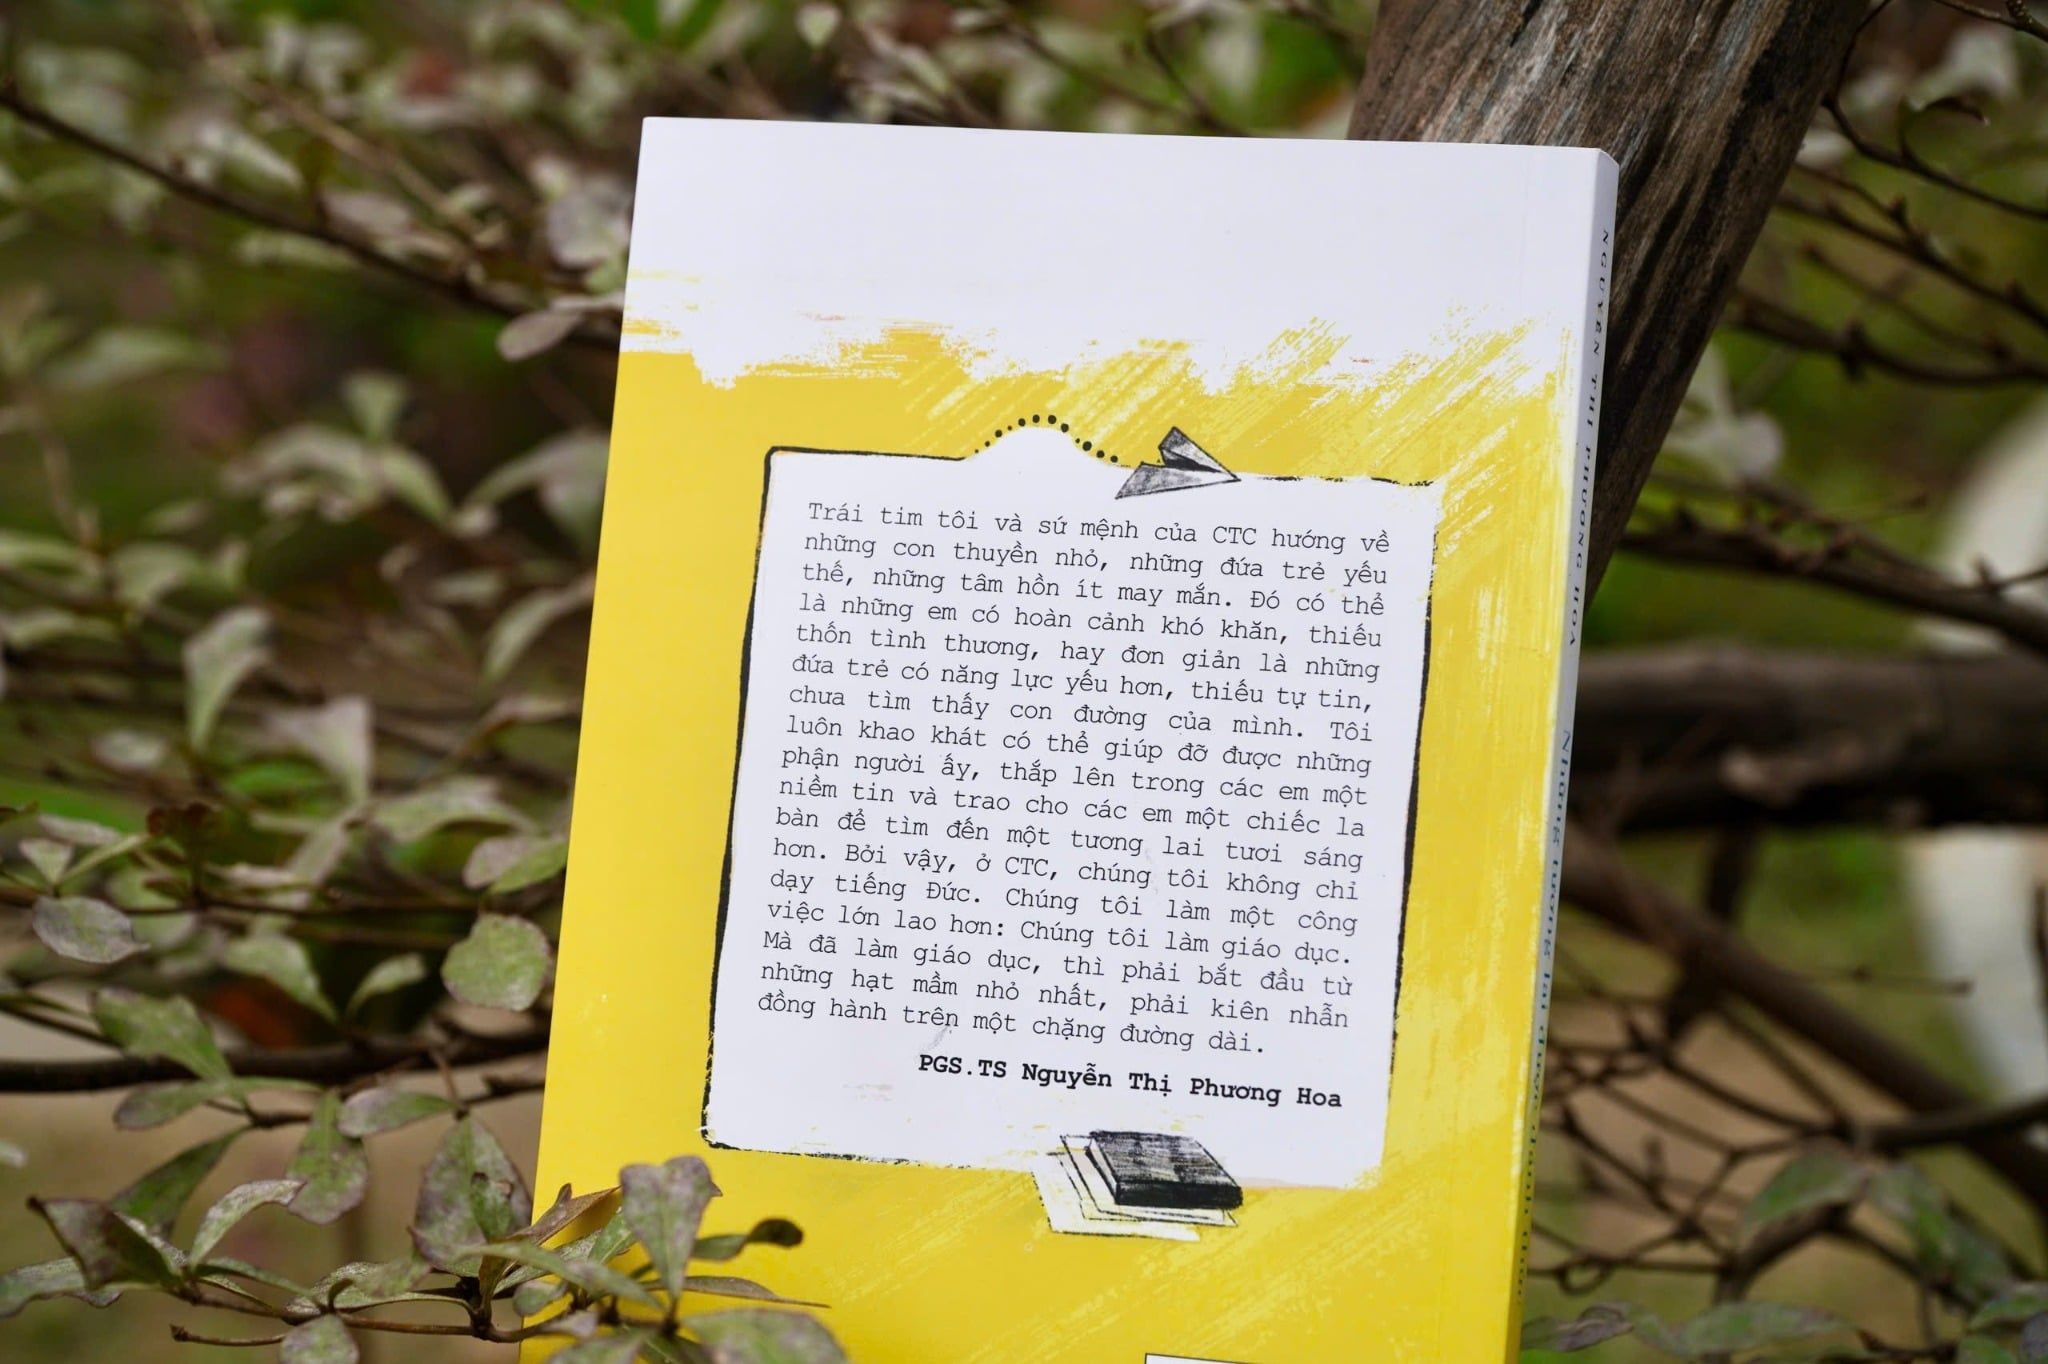 Trái tim tôi và sứ mệnh của CTC hướng về
những con thuyền nhỏ, những đứa trẻ yếu
thế, những tâm hồn ít may mắn. Đó có thể
là những em có hoàn cảnh khó khăn, thiếu
thốn tình thương, hay đơn giản là những
đứa trẻ có năng lực yếu hơn, thiếu tự tin,
chưa tìm thấy con đường của mình. Tôi
luôn khao khát có thể giúp đỡ được những
phận người ấy, thắp lên trong các em một
niềm tin và trao cho các em một chiếc la
bàn để tìm đến một tương lai tươi sáng
hơn. Bởi vậy, ở CTC, chúng tôi không chỉ
dạy tiếng Đức. Chúng tôi làm một công
việc lớn lao hơn: Chúng tôi làm giáo dục.
Mà đã làm giáo dục, thì phải bắt đầu từ
những hạt mầm nhỏ nhất, phải kiên nhẫn
đồng hành trên một chặng đường dài.
PGS.TS Nguyễn Thị Phương Hoa
NGUYỄN THỊ PHƯƠNG HOA
Những tương lai được